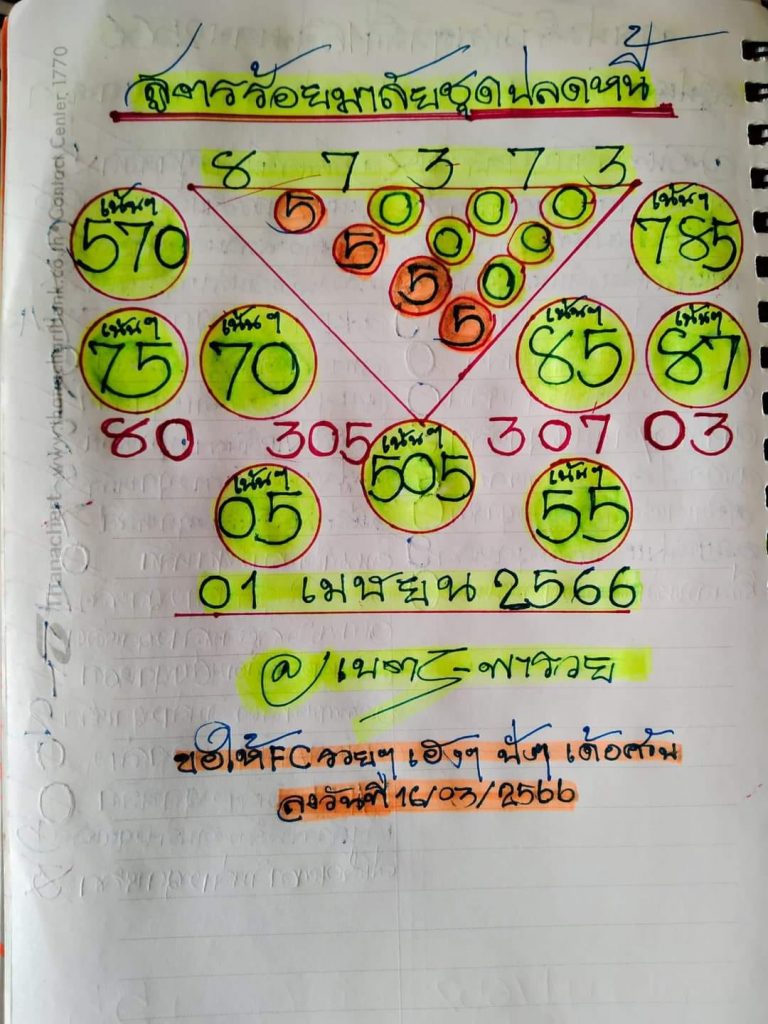 สูตรร้อยมาลัยชุดปลดหนี้
8 7 3 7 3
5 0 0 0
5 0 0
5 0
5
เน้นๆ
570
เน้นๆ
785
เน้นๆ
75
เน้นๆ
70
เน้นๆ
85
เน้นๆ
87
80 305 307 03
เน้นๆ
505
เน้นๆ
05
เน้นๆ
55
01 เมษายน 2566
พารวย
ขอให้ FC รวยๆ เฮงๆ ปังๆ เด้อค่ะ
ลงวันที่ 16/03/2566
www.thanachartbank.co.th Contact Center 1770